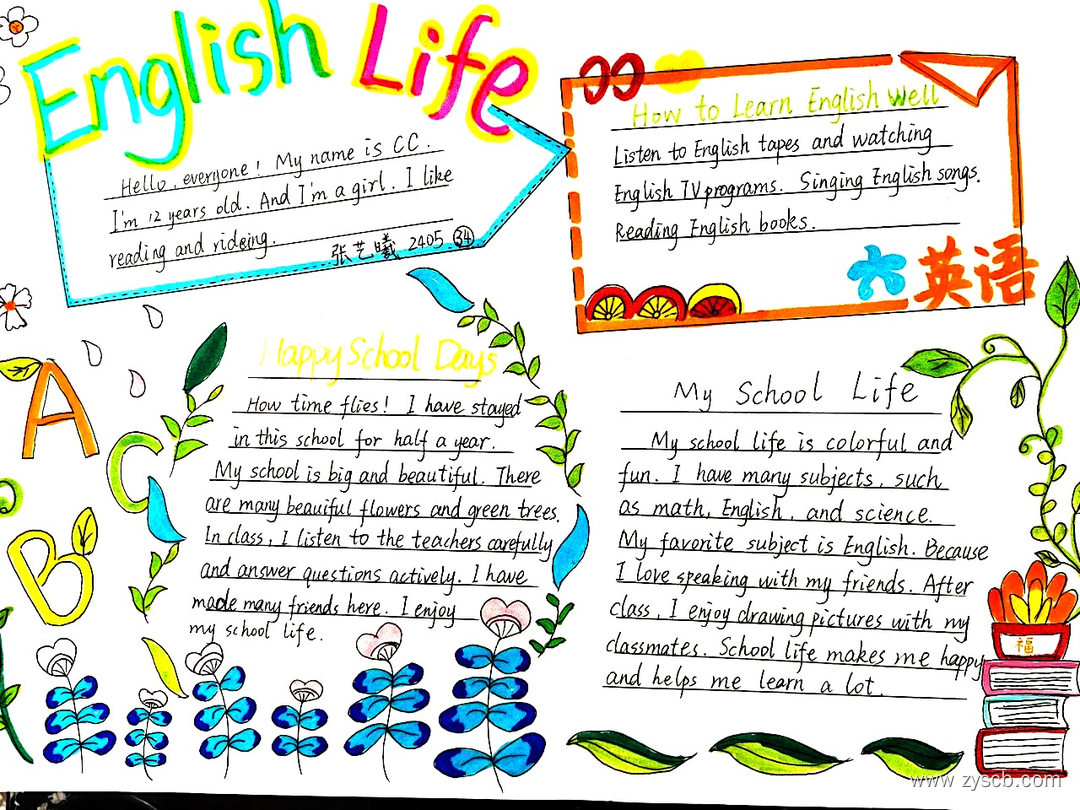 English Life
Hello, everyone! My name is CC.
I'm 12 years old. And I'm a girl. I like
reading and rideing.
张艺曦 2405 34
How to Learn English Well
Listen to English tapes and watching
English TV programs. Singing English songs.
Reading English books.
英语
Happy School Days
How time flies! I have stayed
in this school for half a year.
My school is big and beautiful. There
are many beauiful flowers and green trees.
In class, I listen to the teachers carefully
and answer questions actively. I have
made many friends here. I enjoy
my school life.
My School Life
My school life is colorful and
fun. I have many subjects, such
as math, English, and science.
My favorite subject is English. Because
I love speaking with my friends. After
class, I enjoy drawing pictures with my
classmates. School life makes me happy
and helps me learn a lot.
A
C
B
福
www.zyscb.com